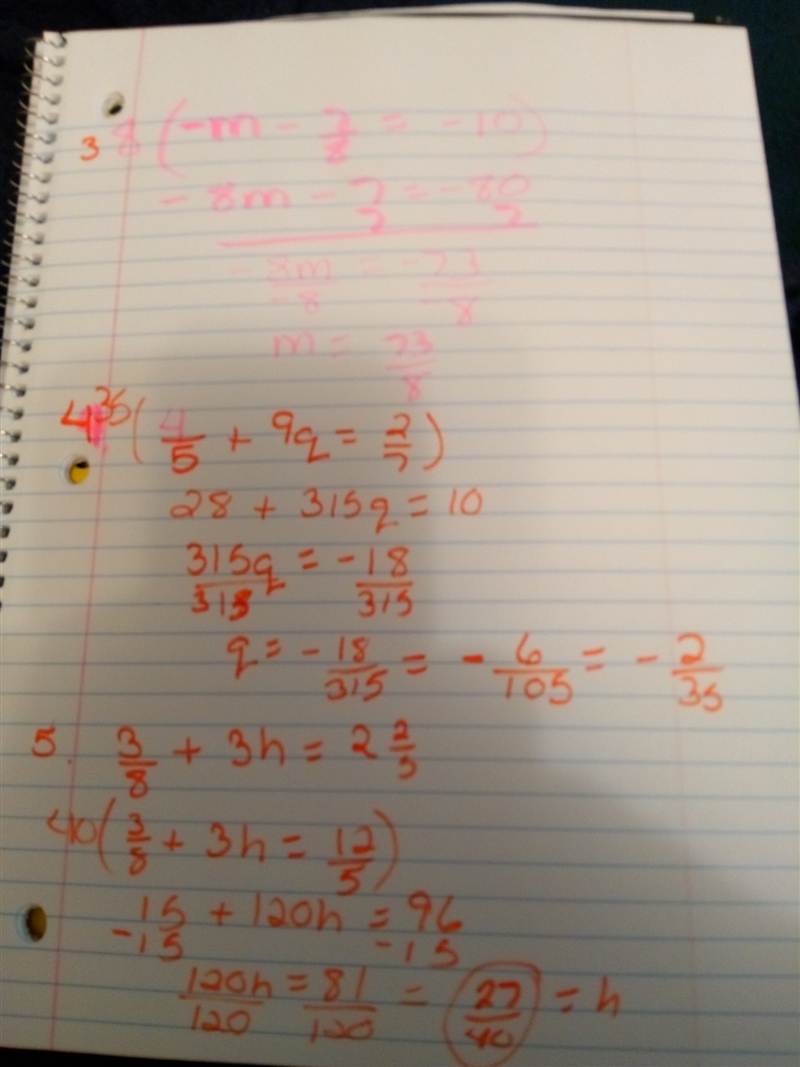 3 8 ( -m - 7/8 = -10 )
- 8m - 7 = -80
7 7
-8m/-8 = -73/-8
m = 73/8
4 35 ( 4/5 + 9q = 2/7 )
28 + 315q = 10
315q/315 = -18/315
q = - 18/315 = - 6/105 = - 2/35
5. 3/8 + 3h = 2 2/5
40 ( 3/8 + 3h = 12/5 )
15 + 120h = 96
-15 -15
120h/120 = 81/120 = 27/40 = h